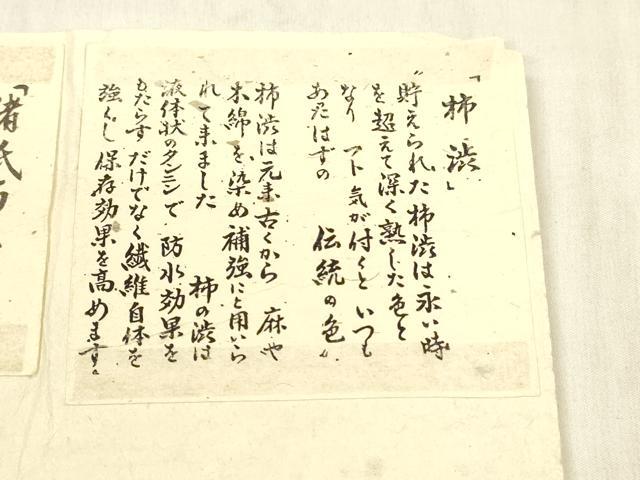 「柿渋」
"貯えられた柿渋は永い時
を超えて深く熟した色と
なり フト気が付くと いつも
あたはずの 伝統の色"
柿渋は元来古くから 麻や
木綿を染め補強にと用いら
れて来ました 柿の渋は
液体状のタンニンで 防水効果を
もたらすだけでなく繊維自体を
強くし 保存効果を高めます。
「渚紙